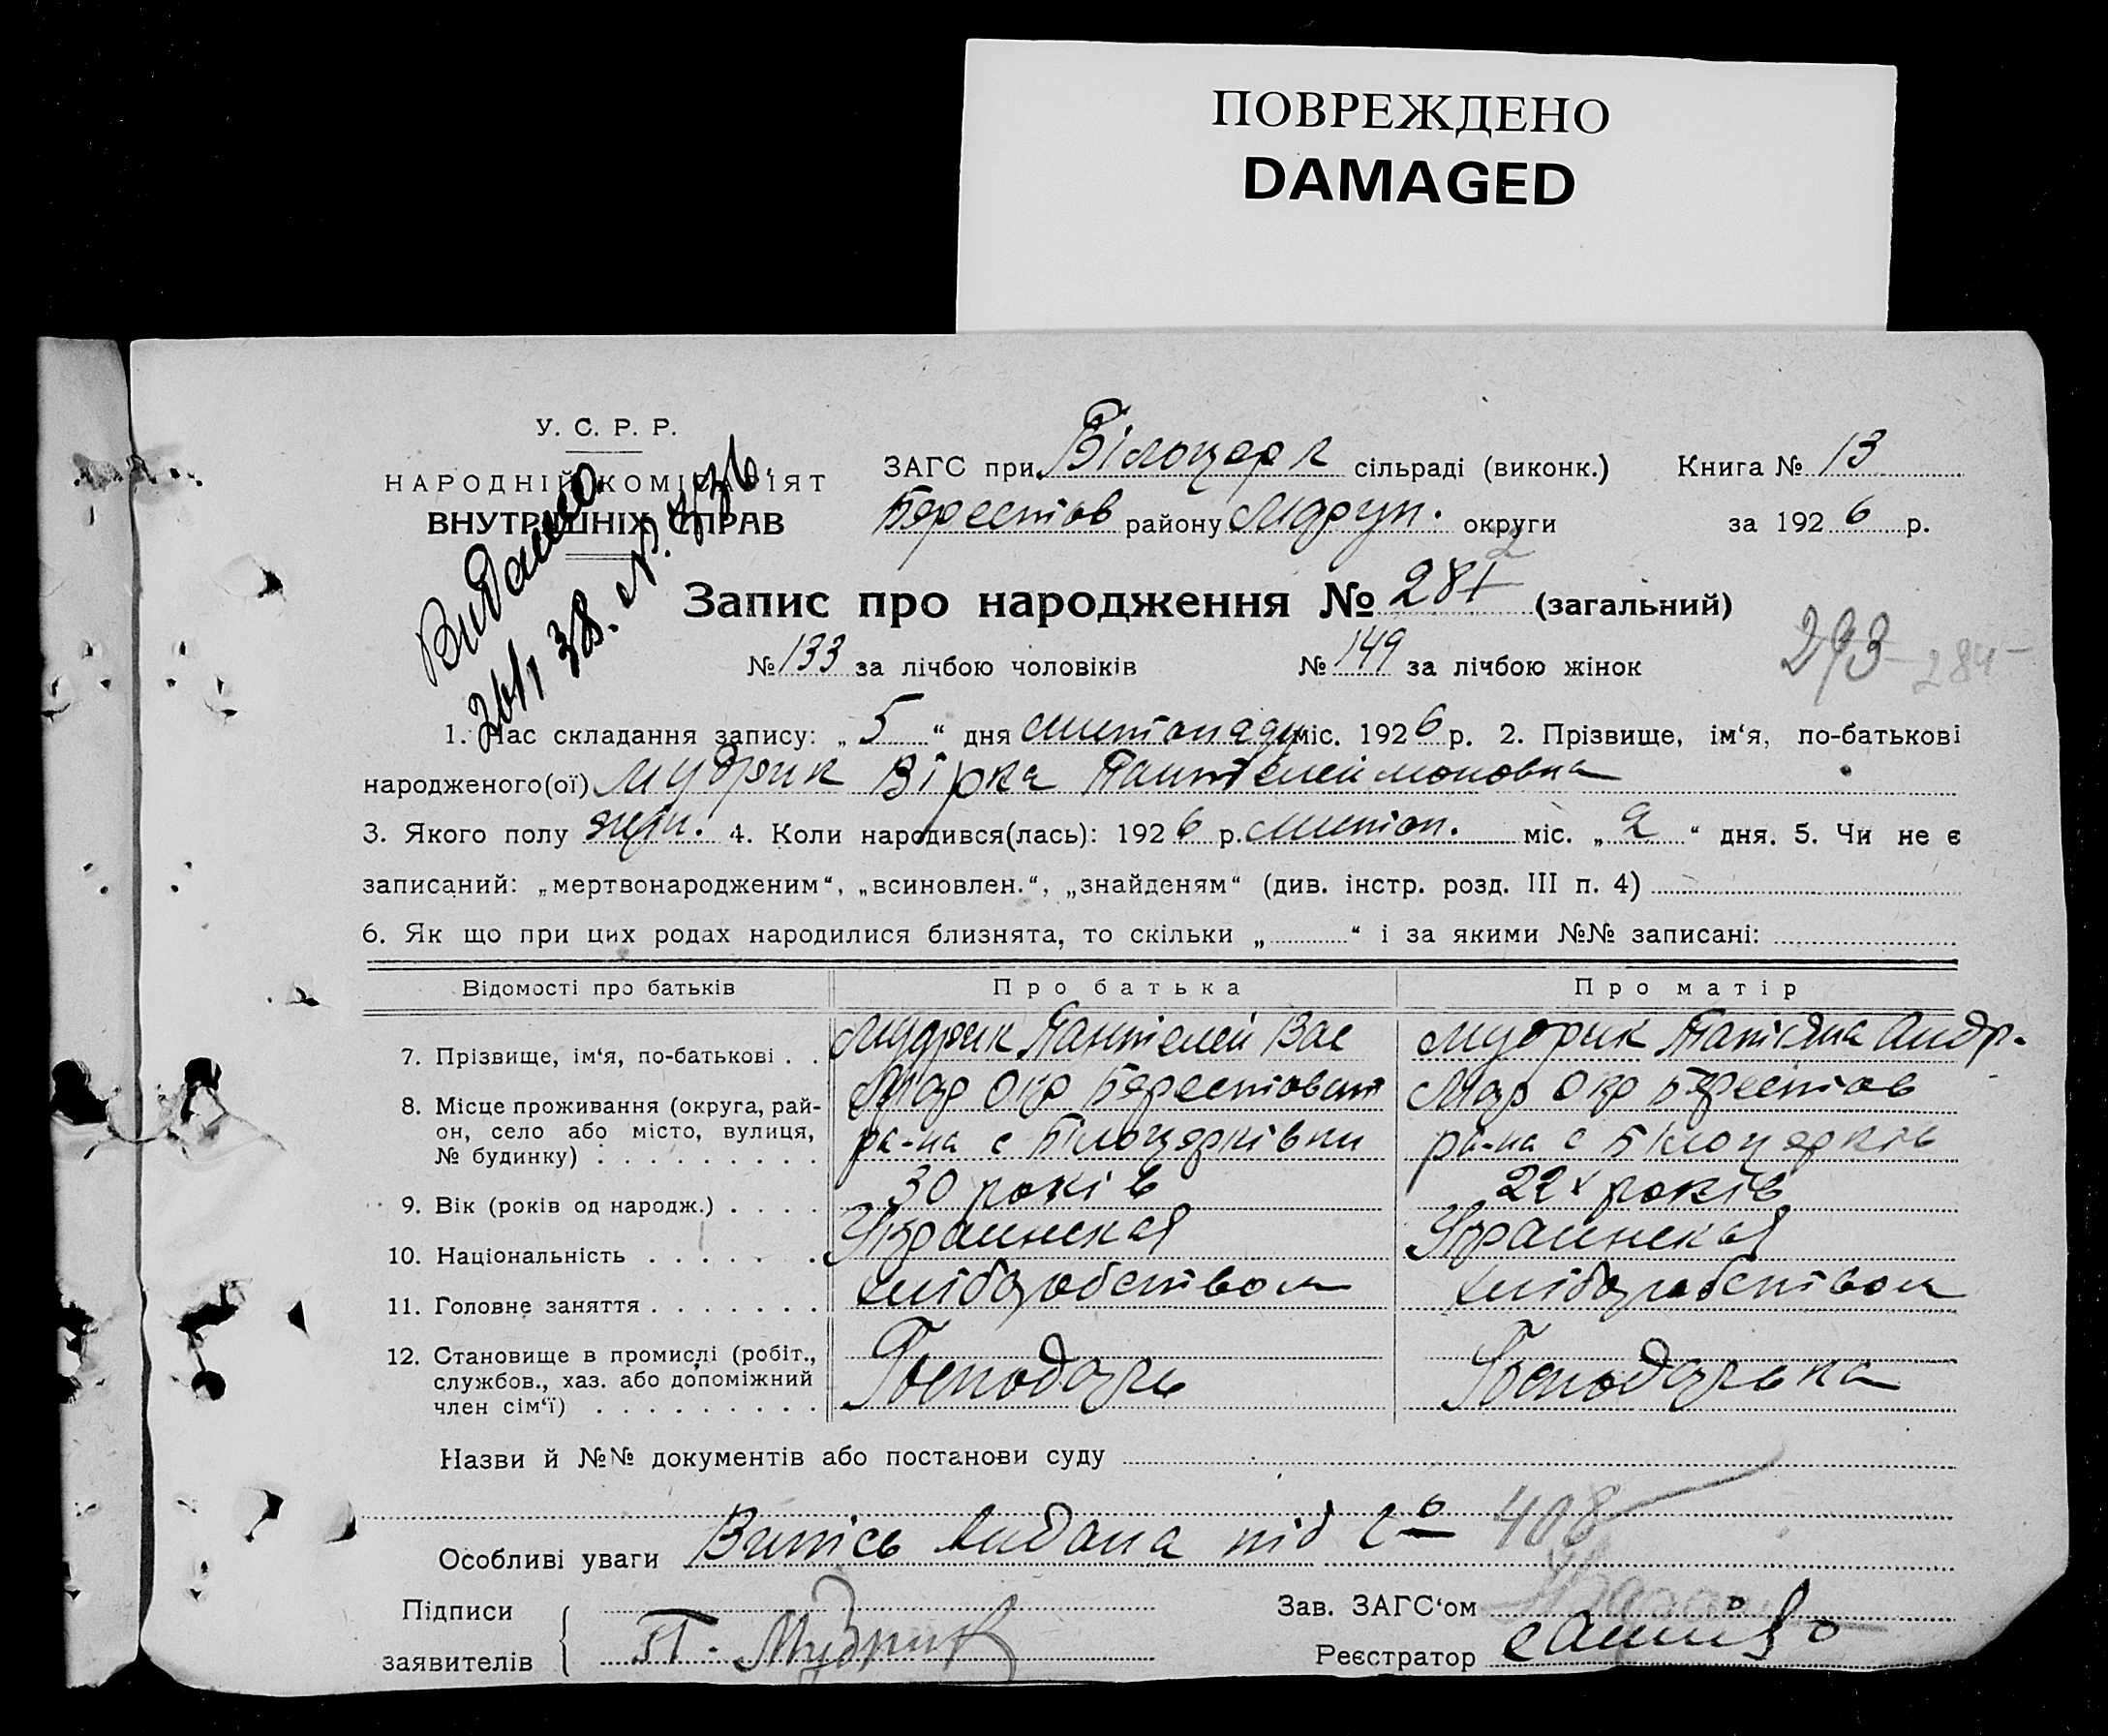 ПОВРЕЖДЕНО
DAMAGED
У. С. Р. Р.
НАРОДНІЙ КОМІСАРІЯТ
ВНУТРІШНІХ СПРАВ
Видано
ЗАГС при Білоцерк сільраді (виконк.) Книга № 13
Берестов району Маруп. округи за 1926 р.
Запис про народження № 281 2 (загальний)
293 284
№ 133 за лічбою чоловіків № 149 за лічбою жінок
1. Час складання запису: „5“ дня листопаду міс. 1926 р. 2. Прізвище, ім‘я, по-батькові
народженого(ої) Мудрик Вірка Пантелеймоновна
3. Якого полу жін. 4. Коли народився(лась): 1926 р. листоп. міс. „2“ дня. 5. Чи не є
записаний: „мертвонародженим“, „всиновлен.“, „знайденям“ (див. інстр. розд. III п. 4)
6. Як що при цих родах народилися близнята, то скільки „ “ і за якими №№ записані:
Відомості про батьків Про батька Про матір
7. Прізвище, ім‘я, по-батькові . . Мудрик Пантелей Вас Мудрик Татіяна Андр.
8. Місце проживання (округа, рай- Мар Окр Берестовск Мар Окр Берестов
он, село або місто, вулиця, ра-на с Білоцерківки ра-на с Білоцерків
№ будинку) . . . . . . . . .
9. Вік (років од народж.) . . . . 30 років 22 років
10. Національність . . . . . . . Украинская Украинская
11. Головне заняття . . . . . . . хліборобством хліборобством
12. Становище в промислі (робіт.,
службов., хаз. або допоміжний Господарь Господарька
член сім‘ї) . . . . . . . . .
Назви й №№ документів або постанови суду
Особливі уваги Випісь видана під 408
Підписи Зав. ЗАГС‘ом
заявителів П. Мудрик Реєстратор